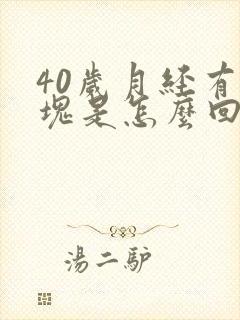 40歲月经有
塊是怎麼回
湯二驴